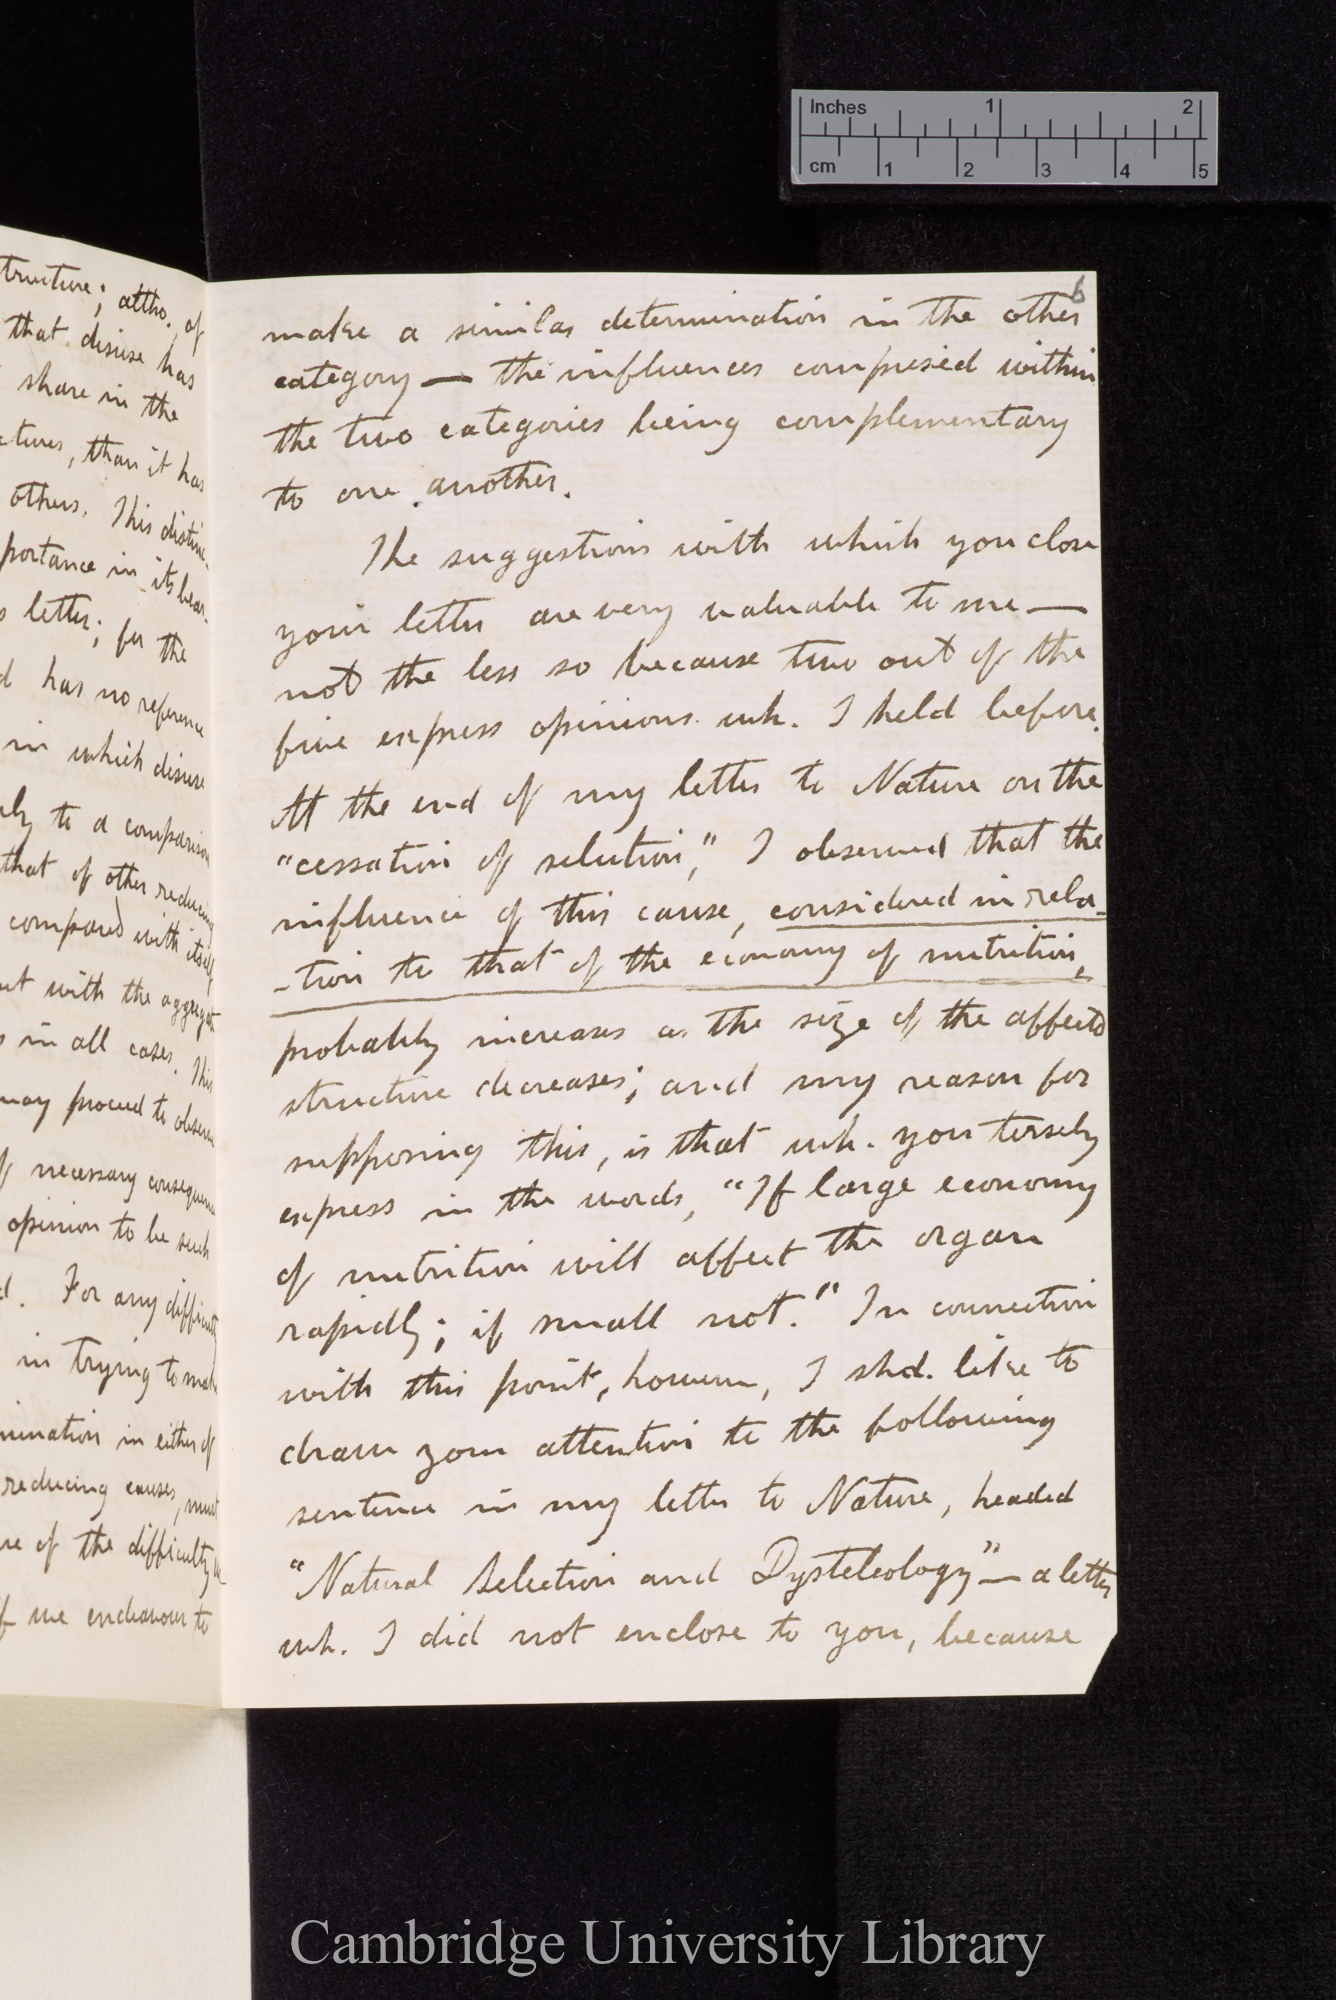 Inches 1 2
cm 1 2 3 4 5
6
structure; altho. of
that disuse has
share in the
than it has
others. This distinc-
portance in its bear-
letter; for the
has no reference
in which disuse
to a comparison
that of other reducing
compared with itself,
with the aggregate
in all cases. This
may proceed to observe
necessary consequence
opinion to be such
For any difficulty
in trying to make
mination in either of
reducing causes, must
of the difficulty
we endeavour to
make a similar determination in the other
category — the influences comprised within
the two categories being complementary
to one another.
The suggestions with which you close
your letter are very valuable to me —
not the less so because two out of the
five express opinions wh. I held before.
At the end of my letter to Nature on the
"cessation of selection," I observed that the
influence of this cause, considered in rela-
-tion to that of the economy of nutrition,
probably increases as the size of the affected
structure decreases; and my reason for
supposing this, is that wh. you tersely
express in the words, "If large economy
of nutrition will affect the organ
rapidly; if small not." In connection
with this point, however, I shd. like to
draw your attention to the following
sentence in my letter to Nature, headed
"Natural Selection and Dysteleology" — a letter
wh. I did not enclose to you, because
Cambridge University Library